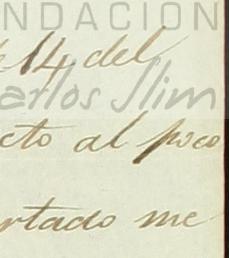 NDACIÓN
e 14 del
arlos Slim
cto al poco
rtado me